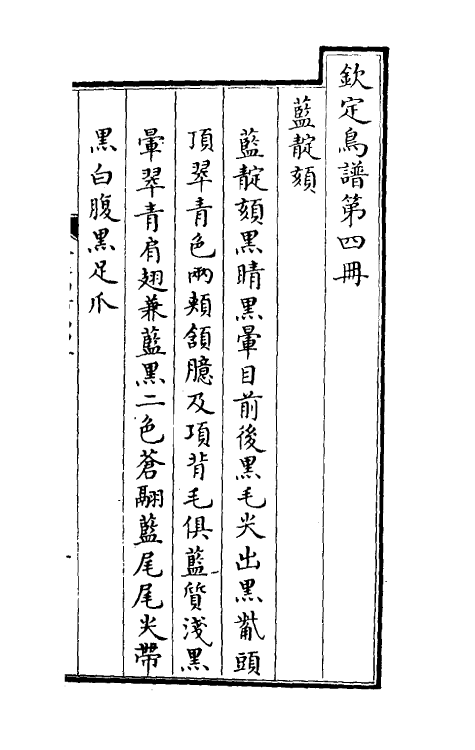 欽定鳥譜第四冊
藍靛頦
藍靛頦黑睛黑暈目前後黑毛尖出黑觜頭
頂翠青色兩頰頷臆及項背毛俱藍質淺黑
暈翠青肩翅兼藍黑二色蒼翮藍尾尾尖帶
黑白腹黑足爪